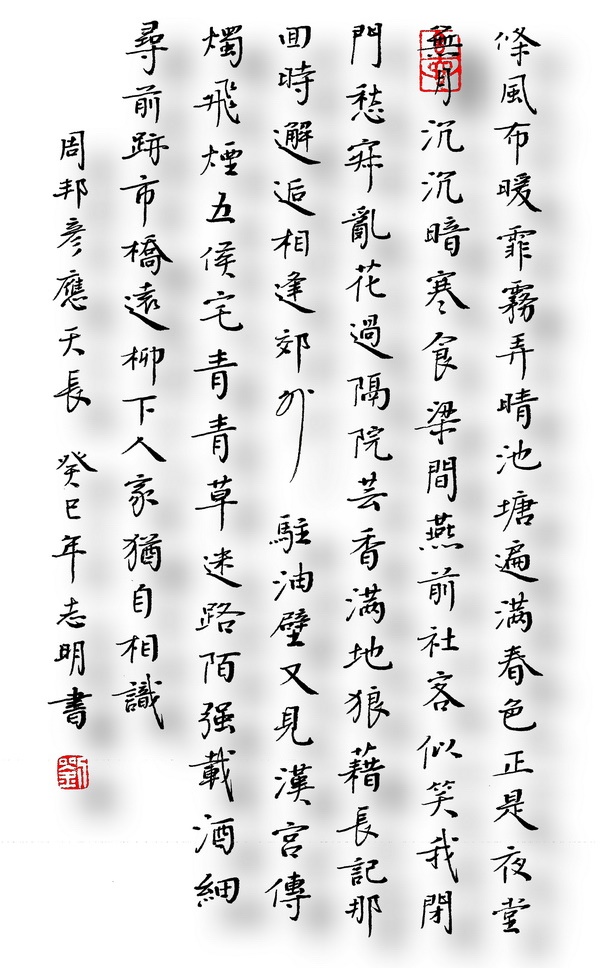 條風布暖霏霧弄晴池塘遍滿春色正是夜堂
無月沉沉暗寒食梁間燕前社客似笑我閉
門愁寂亂花過隔院芸香滿地狼藉長記那
回時邂逅相逢郊外 駐油壁又見漢宮傳
燭飛煙五侯宅青青草迷路陌强載酒細
尋前跡市橋遠柳下人家猶自相識
周邦彥應天長 癸巳年志明書
劉